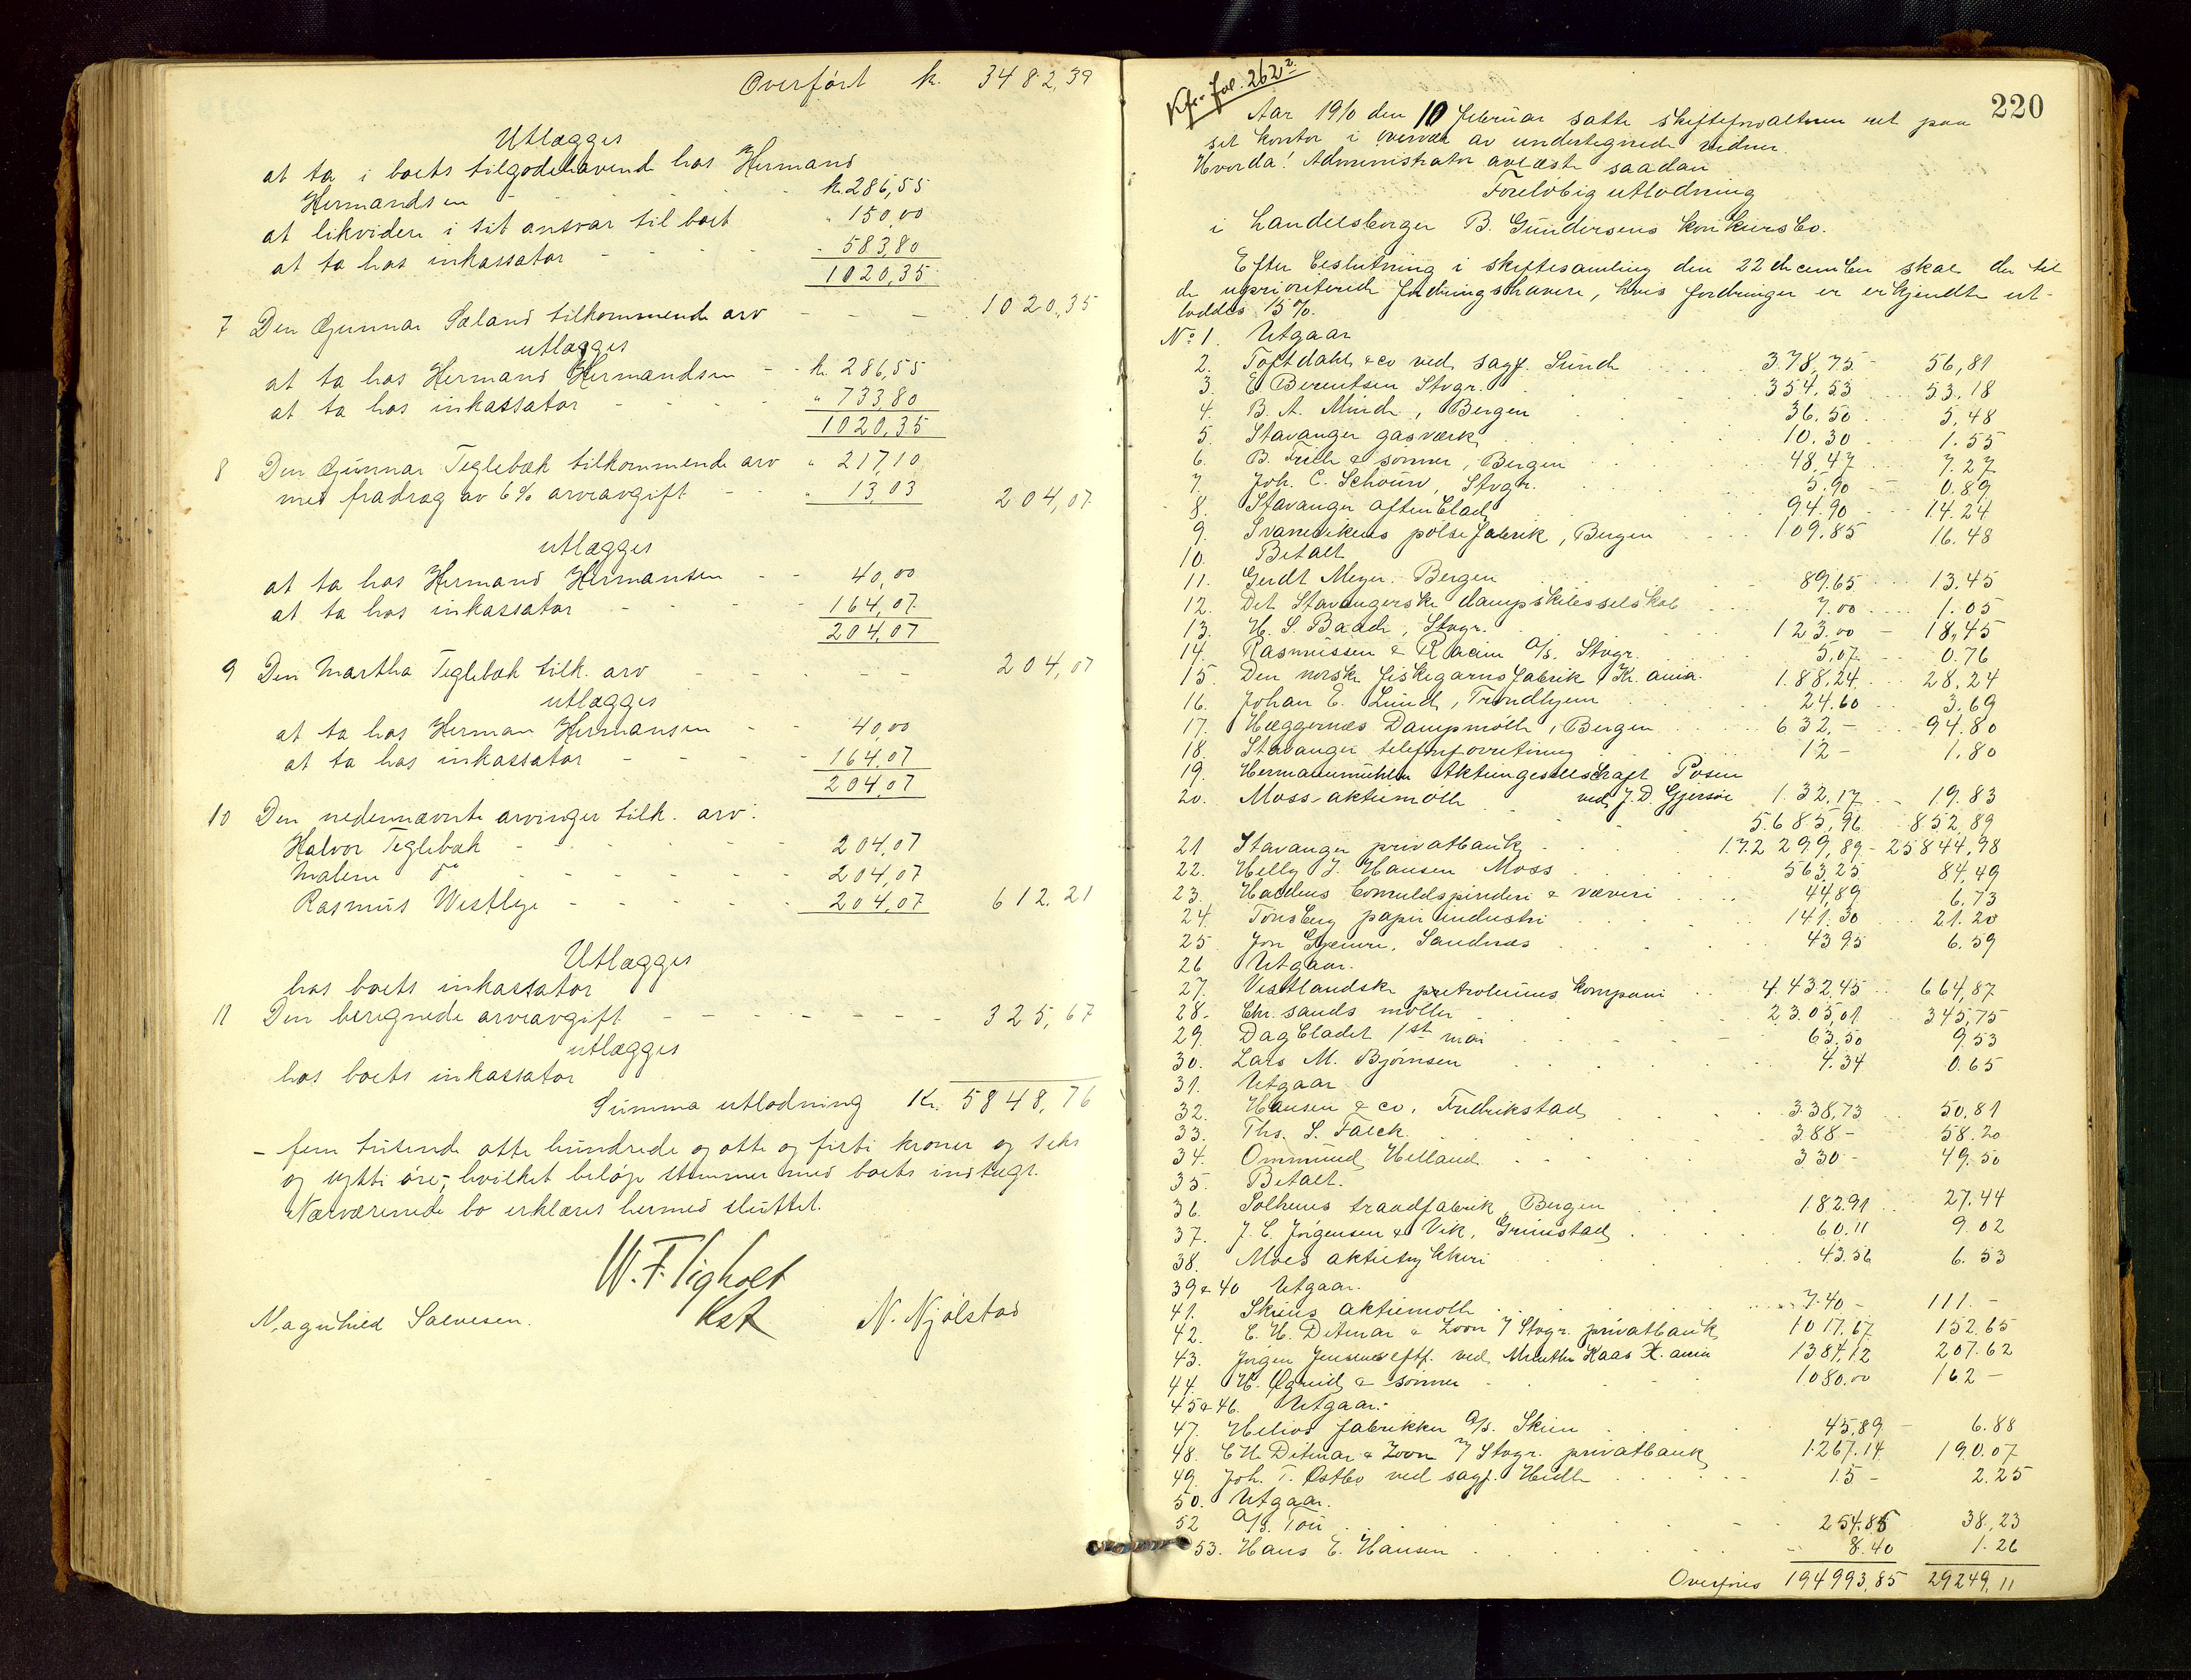 Overført k. 3482,39
Utlægges
at ta i boets tilgodehavende hos Hermand
Hermandsen - k. 286,55
at likvidere i sit ansvar til boet " 150,00
at ta hos inkassator - - - - 583,80
1020,35
7 Den Gunnar Sæland tilkommende arv - - - 1020,35
utlægges
at ta hos Hermand Hermandsen - - k. 286,55
at ta hos inkassator - - - - " 733,80
1020,35
8 Den Gunnar Teglebæk tilkommende arv " 217,10
med fradrag av 6% arveavgift - - " 13,03 204,07
utlægges
at ta hos Hermand Hermansen - - 40,00
at ta hos inkassator - - - - 164,07
204,07
9 Den Martha Teglebæk tilk. arv - - - - - - 204,07
utlægges
at ta hos Herman Hermansen - - 40,00
at ta hos inkassator - - - - 164,07
204,07
10 Den nedennævnte arvinger tilk. arv:
Halvor Teglebæk - - - - - 204,07
Malene do - - - - - - 204,07
Rasmus Westlye - - - - - 204,07 612,21
Utlægges
hos boets inkassator
11 Den beregnede arveavgift - - - - - - - 325,67
utlægges
hos boets inkassator
Summa utlodning Kr. 5848,76
- fem tusende otte hundrede og otte og firti kroner og seks
og sytti øre; hvilket beløp stemmer med boets indtægt.
Nærværende bo erklæres hermed sluttet.
W. F.
Kst
Magnhild Salvesen. N. Njølstad
Kfr. fol. 262 2.
220
Aar 1910 den 10 februar satte skifteforvalteren ret paa
sit kontor i overvær av undertegnede vidner.
Hvorda! Administrator avlæste saadan
Foreløbig utlodning
i Handelsborger B. Gundersens konkursbo.
Efter beslutning i skiftesamling den 22 december skal der til
de uprioriterede fordringshavere, hvis fordringer er erkjendte ut-
loddes 15%.
No. 1. Utgaar
2. Toftdahl & co ved sagf. Sunde 378,75 - 56,81
3. E Berentsen Stvgr. 354,53 53,18
4. B. A. Minde, Bergen 36.50 5,48
5. Stavanger gasværk 10.30 1.55
6. B. Friele & sønner, Bergen 48,47 7.27
7. Joh. C. Schouw, Stvgr. 5,90 0.89
8. Stavanger aftenblad 94.90 14.24
9. Svanevikens pølsefabrik, Bergen 109.85 16.48
10. Betalt
11. Gerdt Meyer. Bergen 89.65 13.45
12. Det Stavangerske dampskibsselskab 7.00 1.05
13. H. S. Baade, Stvgr. 123.00 - 18,45
14. Rasmussen & Racin A/s. Stvgr. 5,07 0.76
15. Den norske fiskegarnsfabrik Kr. ania. 188,24 28,24
16. Johan E. Lund, Trondhjem 24.60 3.69
17. Hæggernæs Dampmølle, Bergen 632,- 94.80
18. Stavanger telefonforretning 12- 1.80
19. Hermannmühlen Aktiengesellschaft Posen
ved J. D. Gjersøe 132,17 19.83
20. Moss-aktiemølle 5685,96 852,89
21 Stavanger privatbank 172 299,89 - 25844,98
22. Helly J. Hansen Moss 563,25 84,49
23. Haldens bomuldspinderi & væveri 44,89 6.73
24. Tønsberg papirindustri 141.30 21.20
25 Jon Gjemre, Sandnæs 43 95 6.59
26 Utgaar.
27. Vestlandske petroleums kompani 4.432,45 664,87
28. Chr. sands møller 2305,01 345,75
29. Dagbladet 1st mai 63.50 9.53
30. Lars M. Bjørnsen 4.34 0.65
31. Utgaar.
32. Hansen & co, Fredrikstad 338,73 50,81
33. Ths. S. Falck. 388- 58.20
34. Ommund Helland 330- 49.50
35. Betalt.
36. Solheims traadfabrik, Bergen 182.91 27.44
37. J. C. Jørgensen & Vik, Grimstad 60.11 9.02
38. Moes aktietrykkeri 43.56 6.53
39 & 40 Utgaar.
41. Skiens aktiemølle 740- 111.-
42. E. H. Ditmar & Zoon 7/ Stvgr. privatbank 1017.67 152.65
43. Jørgen Jensens eftf. ved Minthe Kaas K. ania 1384,12 207.62
44. H. Øgreid & sønner 1080.00 162-
45 & 46. Utgaar.-
47. Helios fabrikker A/s. Skien 45,89 - 6.88
48. E H. Ditmar & Zoon 7/ Stvgr. privatbank 1267.14 190.07
49. Joh. T. Østbø ved sagf. Hidle 15- 2.25
50. Utgaar.
52 A/s. Tou 254.85 38,23
53. Hans E. Hansen 8.40 1.26
Overføres 194993,85 29249,11